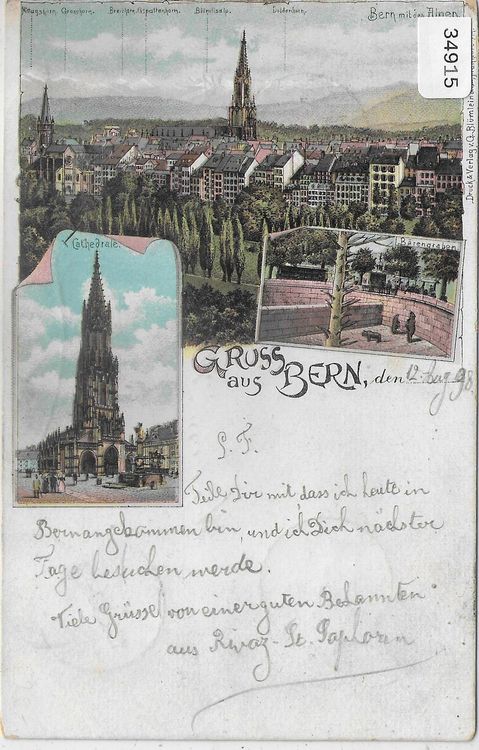 Kingshorn. Grenshorn. Breithorn. Gspaltenhorn. Blümlisalp. Doldenhorn.
Bern mit den Alpen
34915
Druck & Verlag v. G. Blümlein
Cathedrale.
Bärengraben
GRUSS
aus BERN, den 12. Aug 98.
L. F.
Teile Dir mit dass ich heute in
Bern angekommen bin, und ich Dich nächster
Tage besuchen werde.
Viele Grüsse von einer guten Bekannten
aus Rivaz-St. Saphorin